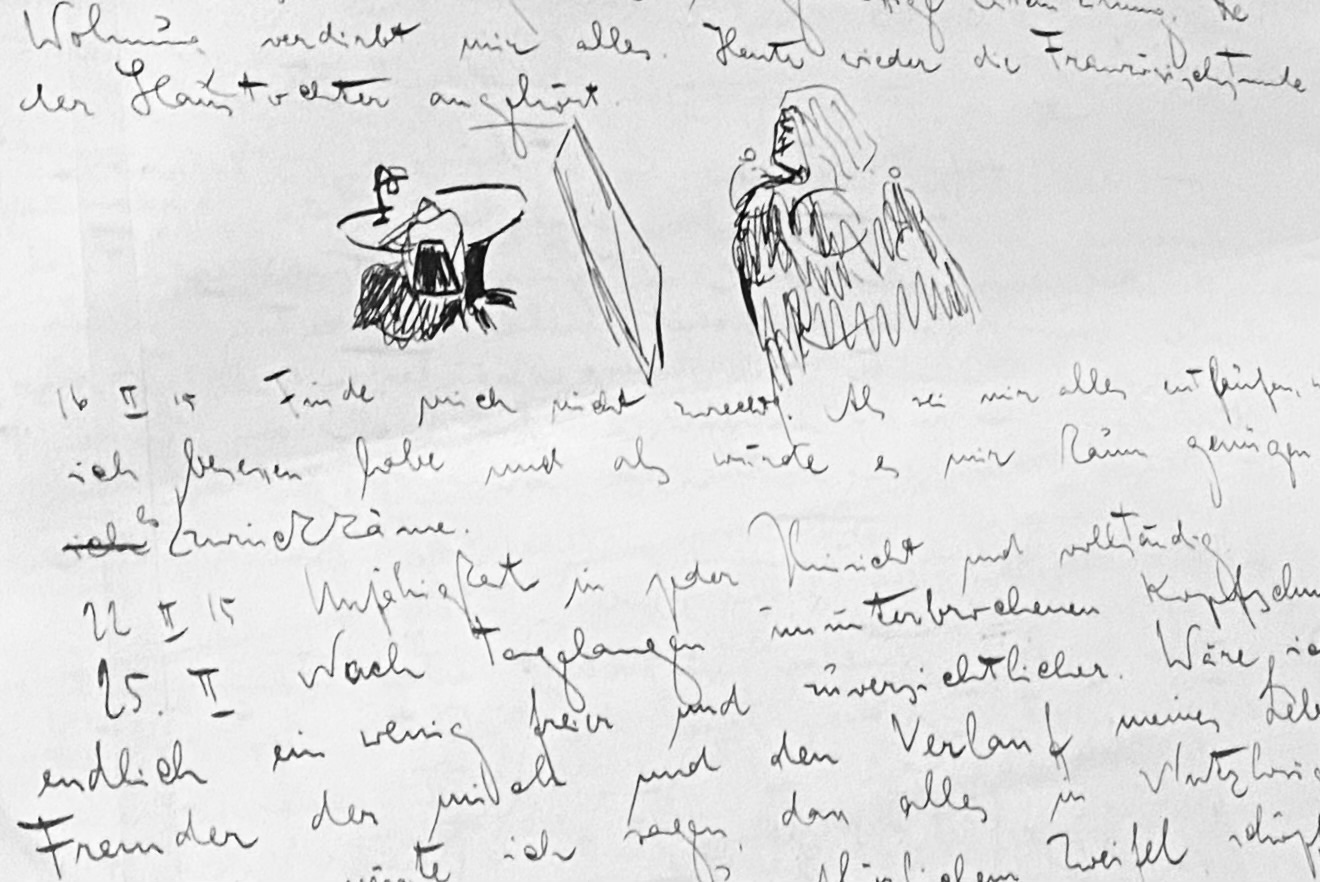 Wohnung verdirbt mir alles. Heute wieder die Französischstunde
der Haustochter angehört.
16 II 15 Finde mich nicht zurecht. Als sei mir alles entlaufen,
ich besessen habe und als würde es mir kaum genügen
es zurückkäme.
22 II 15 Unfähigkeit in jeder Hinsicht und vollständig
25. II Nach tagelangen ununterbrochenen Kopfschm
endlich ein wenig freier und zuversichtlicher. Wäre ich
Fremder der mich und den Verlauf meines Lebe
ich sagen, dass alles in Nutzlosig
Zweifel